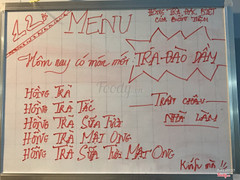 12
MENU
Hôm nay có món mới
TRÀ ĐÀO DẦM
HỒNG TRÀ
HỒNG TRÀ TẮC
HỒNG TRÀ SỮA
HỒNG TRÀ MẬT ONG
HỒNG TRÀ SỮA MẬT ONG
TRÂN CHÂU
NHÀ LÀM
Foody